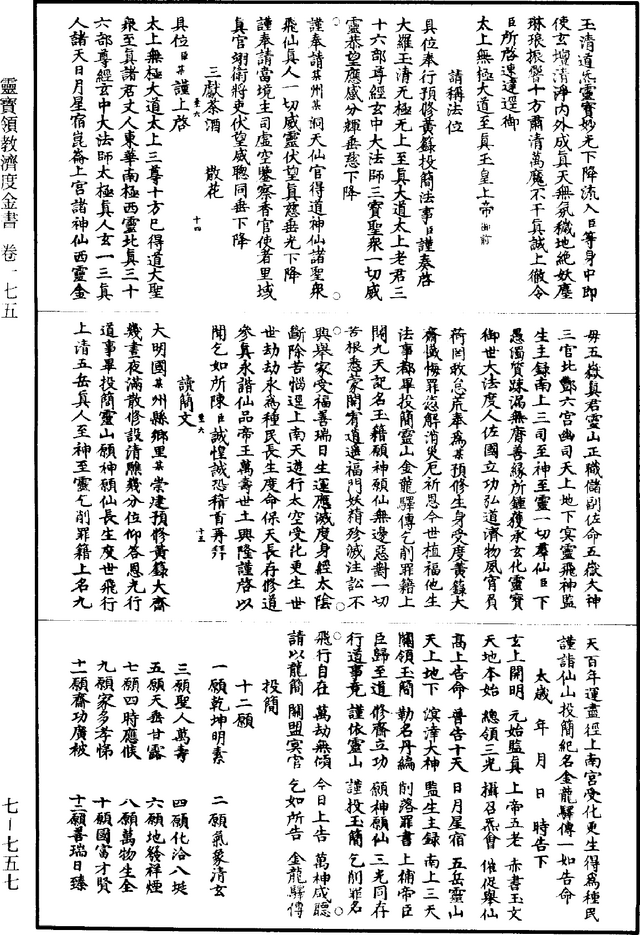 玉清道炁靈寶妙光下降流入臣等身中即
使玄壇清淨內外成真天無氛穢地絶妖塵
琳琅振響十方肅清萬魔不干真誠上徹令
臣所啓速達逕御
太上無極大道至真玉皇上帝御前
請稱法位
具位奉行預修黃籙投簡法事臣謹奏啓
大羅玉清元極元上至真大道太上老君三
十六部尊經玄中大法師三寳聖衆一切威
靈恭望應感分輝垂慈下降
謹奉請某州某洞天仙官得道神仙諸聖衆
飛仙真人一切威靈伏望真慈垂光下降
謹奉請當境土司虛空鑒察香官使者里域
真官翊衛將吏伏望威聦同垂下降
三獻茶酒 散花
十四
具位臣某謹上啓
太上無極大道太上三尊十方已得道大聖
衆至真諸君丈人東華南極西靈北真三十
六部尊經玄中大法師太極真人玄一三真
人諸天日月星宿崑崙上宮諸神仙西靈金
母五嶽真君靈山正職儲副佐命五嶽大神
三官北酆六宮幽司天上地下冥靈飛神監
生主録南上三司至神至靈一切羣仙臣下
愚濁質踈漏無庸善緣所鍾獲承玄化靈寳
御世大法度人佐國立功弘道濟物夙宵負
荷罔敢怠荒奉爲某預修生身受度黃籙大
齋懴悔罪愆解消災厄祈恩今世植福他生
法事都畢投簡靈山金龍驛傳乞削罪籍上
聞九天記名玉籍願神願仙無邊惡對一切
苦根悉蒙開宥道遥福門妖穢殄滅注訟不
興舉家受福善瑞日生運應滅度身經太陰
斷除苦惱逕上南天遊行太空受化更生世
世劫劫永爲種民長生度命保天長存修道
參真永諧仙品帝王萬壽世土興隆謹啓以
聞乞如所陳臣誠惶誠恐稽首再拜
十五
讀簡文
大明國某州縣鄉里某崇建預修黃籙大齋
幾晝夜滿散修設清醮幾分位仰答恩光行
道事畢投簡靈山願神願仙長生度世飛行
上清五岳真人至神至靈乞削罪籍上名九
天百年運盡徑上南宮受化更生得爲種民
謹詣仙山投簡紀名金龍驛傳一如告命
太歲 年 月 日 時告下
玄上開明 元始監真 上帝五老 赤書玉文
天地本始 總領三光 攝召炁會 催促舉仙
髙上告命 普告十天 日月星宿 五岳靈山
天上地下 溟漳大神 監生主録 南上三天
關領玉簡 勒名丹編 削落罪書 上補帝臣
臣歸至道 修齋立功 願神願仙 三光同存
行道事竟 謹依靈山 謹投玉簡 乞削罪名
飛行自在 萬劫無傾 今日上告 萬神咸聽
請以龍簡 關盟冥官 乞如所告 金龍驛傳
投簡
十二願
一願乾坤明素 二願氣象清玄
三願聖人萬壽 四願化洽八埏
五願天垂甘露 六願地發祥煙
七願四時應候 八願萬物生全
九願家多孝悌 十願國富才賢
十一願齋功廣被 十二願善瑞日臻
靈寶領教濟度金書 卷一七五
七－七五七